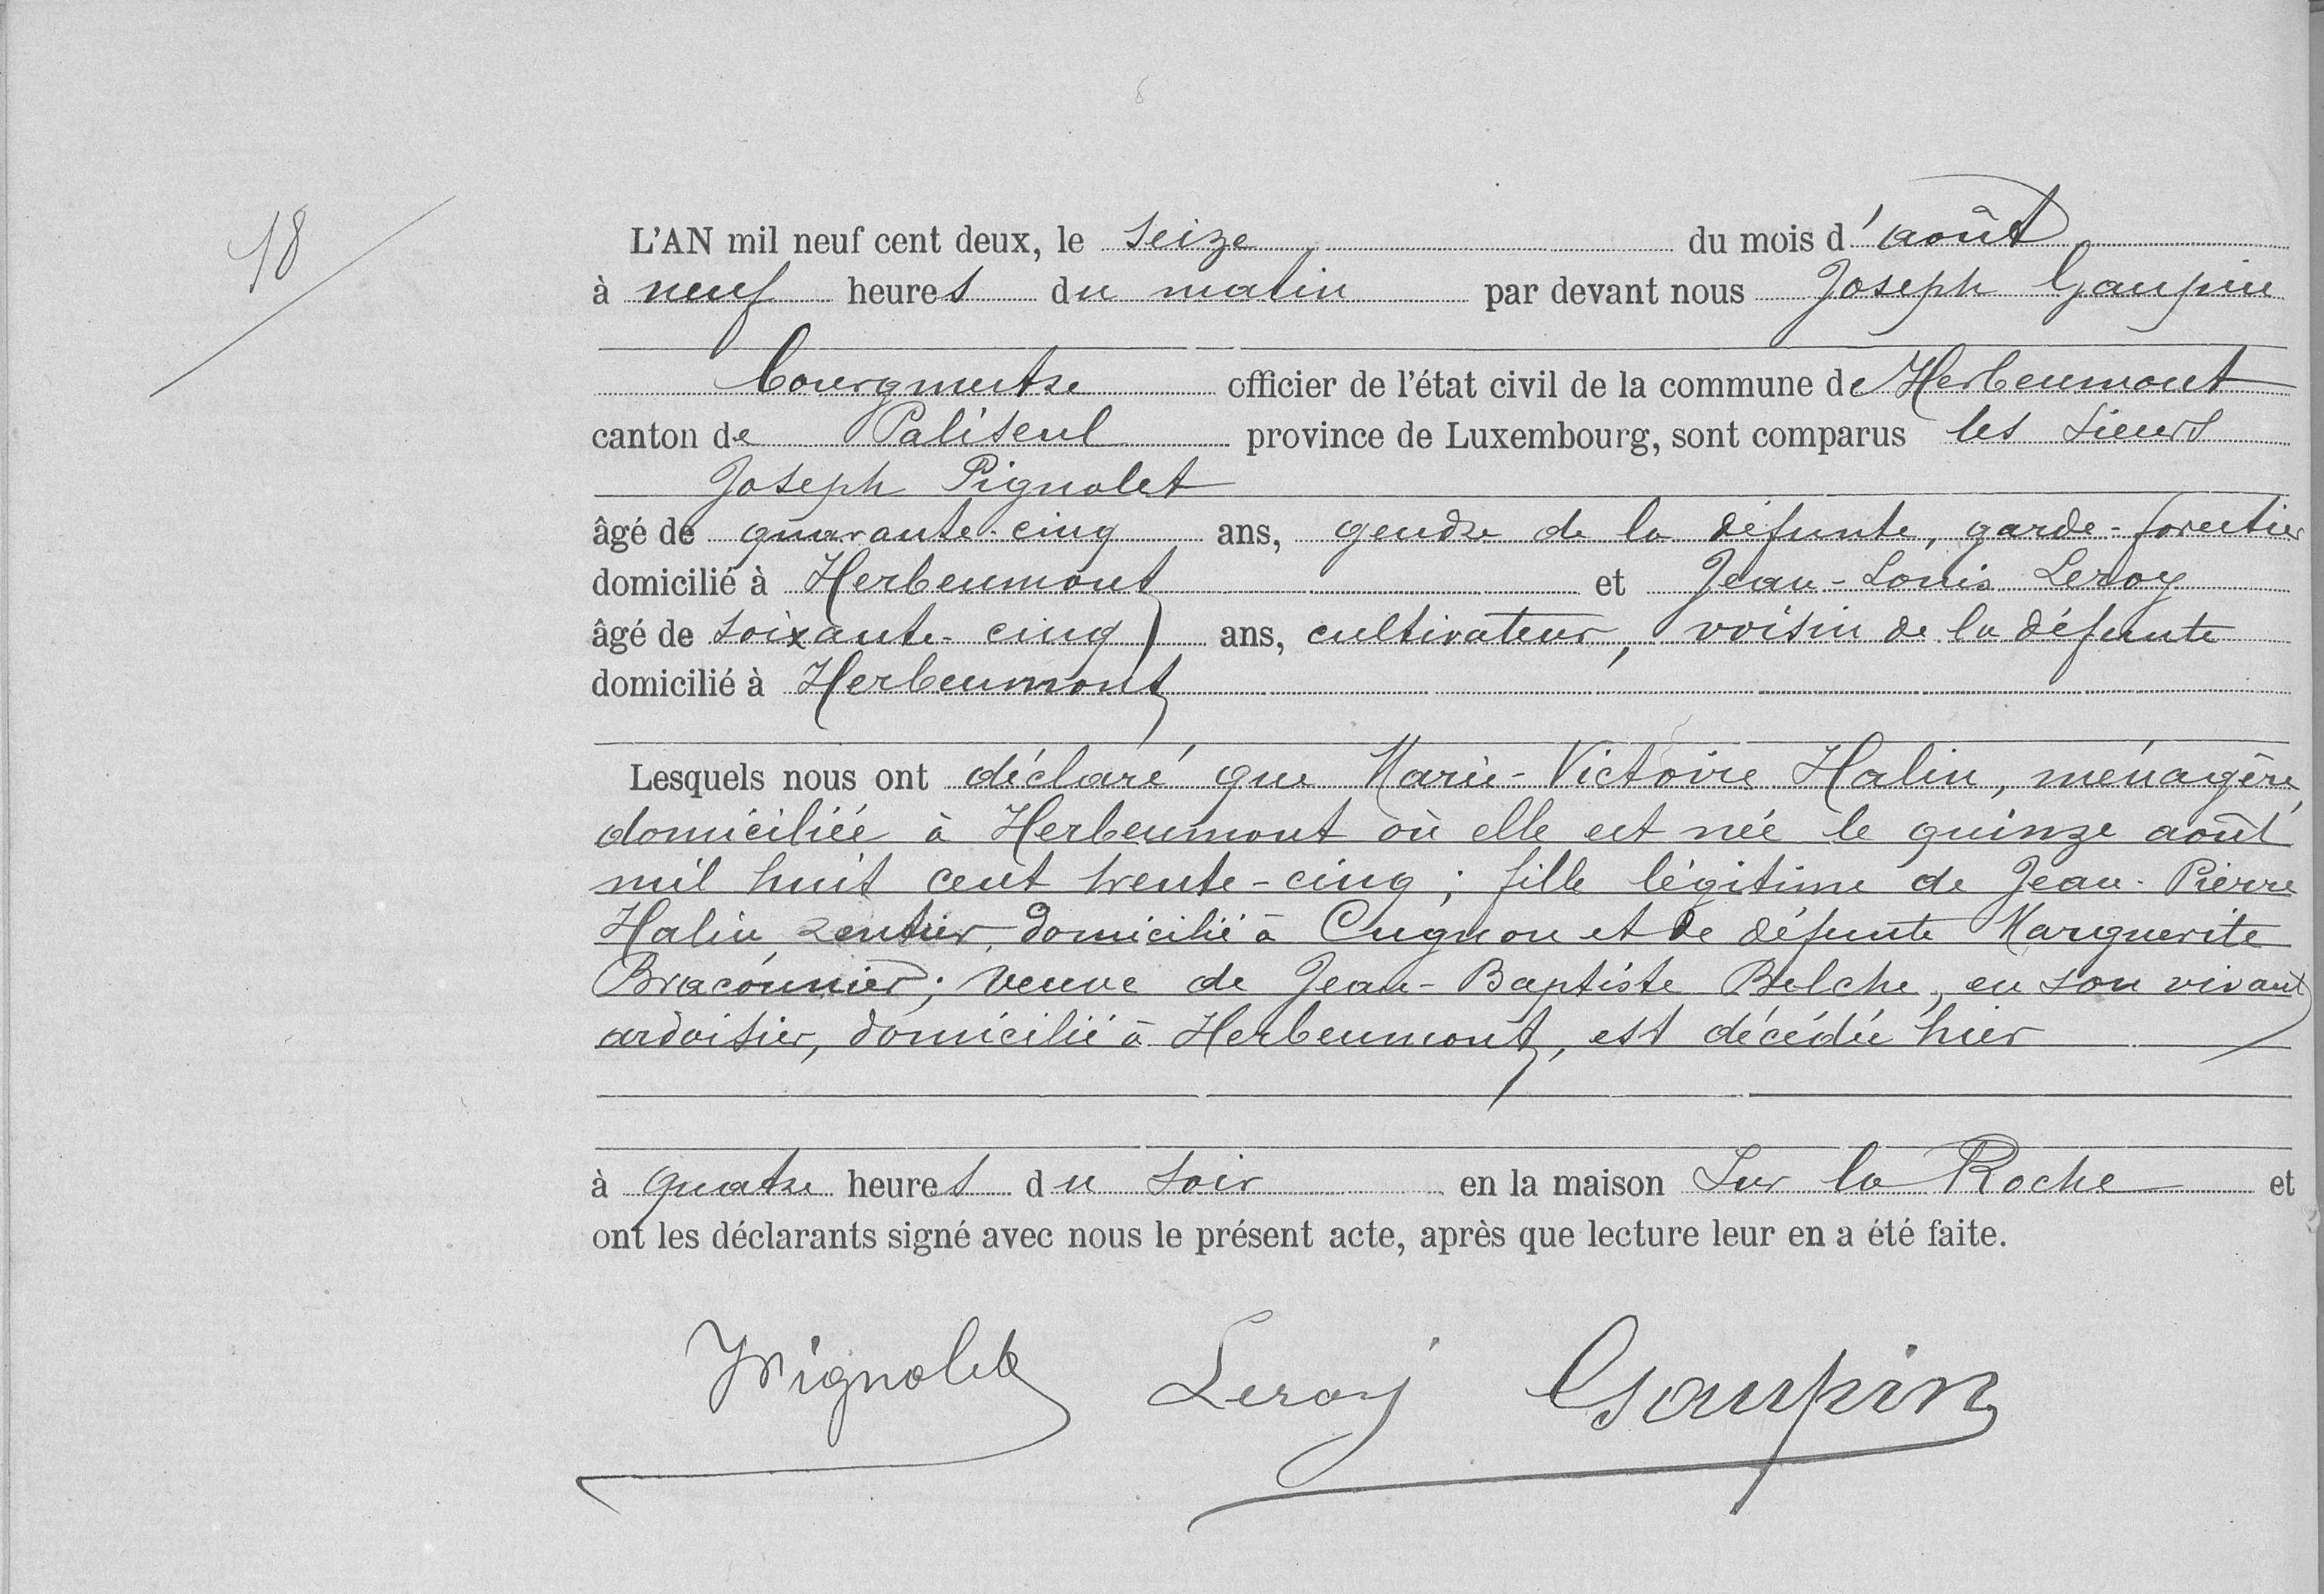 18
L'AN mil neuf cent deux, le seize du mois d'août
à neuf heures du matin par devant nous Joseph Gaupin
bourgmestre officier de l'état civil de la commune de Herbeumont
canton de Paliseul province de Luxembourg, sont comparus les sieurs
Joseph Pignolet
âgé de quarante-cinq ans, gendre de la défunte, garde-forestier
domicilié à Herbeumont et Jean-Louis Leroy
âgé de soixante-cinq ans, cultivateur, voisin de la défunte
domicilié à Herbeumont
Lesquels nous ont déclaré que Marie-Victoire Halin, ménagère,
domiciliée à Herbeumont où elle est née le quinze août
mil huit cent trente-cinq; fille légitime de Jean-Pierre
Halin rentier domicilié à Cugnon et de défunte Marguerite
Braconnier; veuve de Jean-Baptiste Belche, en son vivant
ardoisier, domicilié à Herbeumont, est décédée hier
à quatre heures du soir en la maison Sur la Roche et
ont les déclarants signé avec nous le présent acte, après que lecture leur en a été faite.
JPignolet Leroy Gaupin